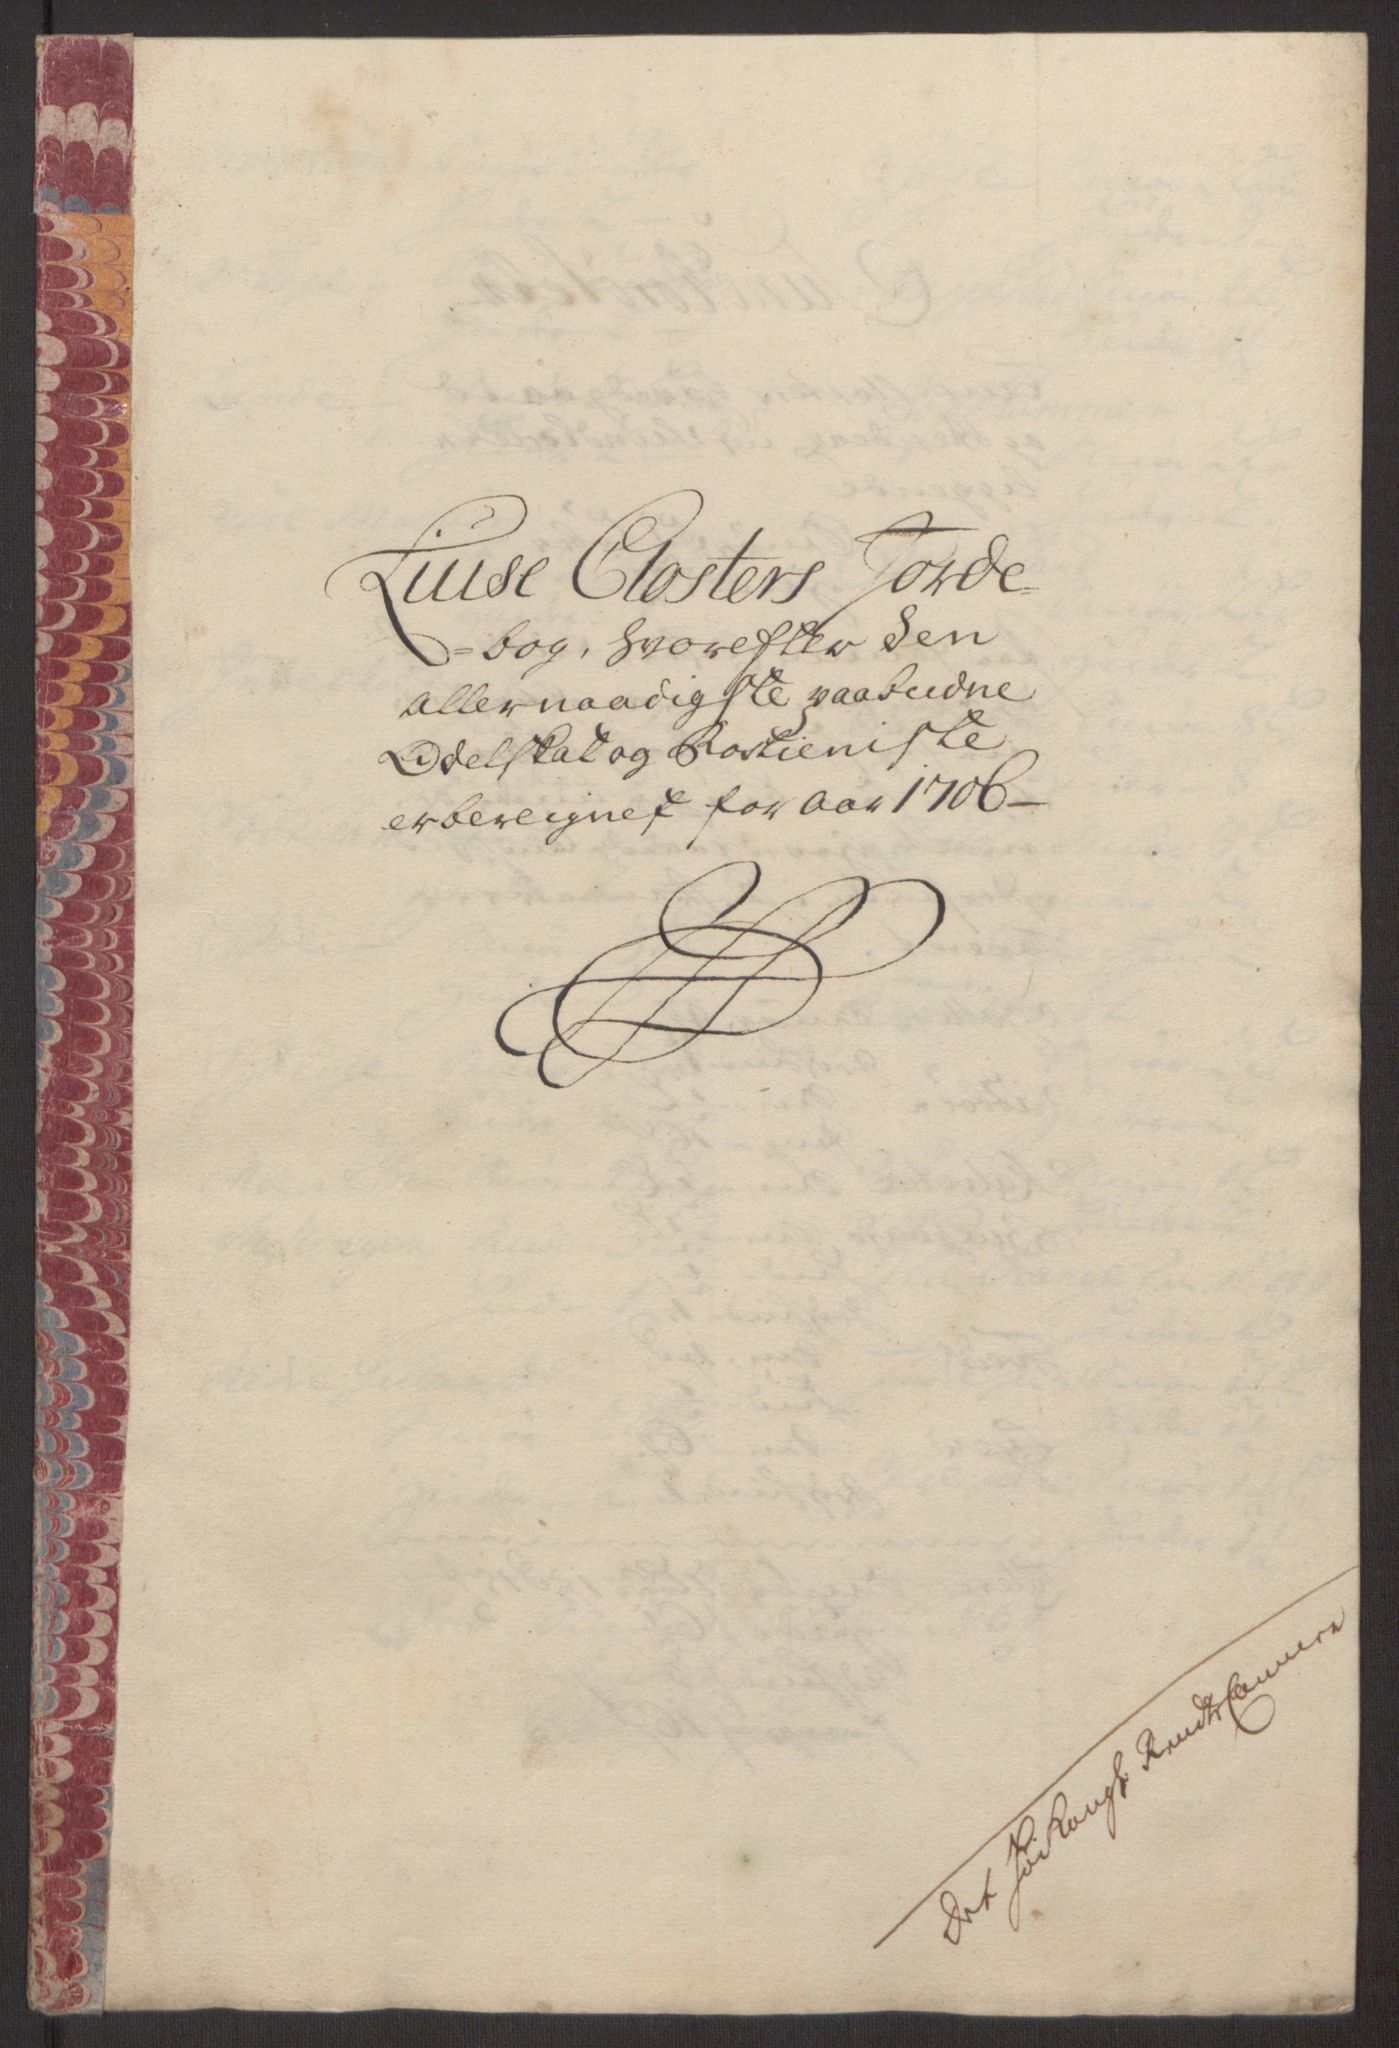 Liuse Closters Jorde-
=bog, hvorefter den
allernaadigste paabudne
Odelskat og Rostieniste
er bereignet for Aar 1706
Det Høi Kongl: Rendte Cammera